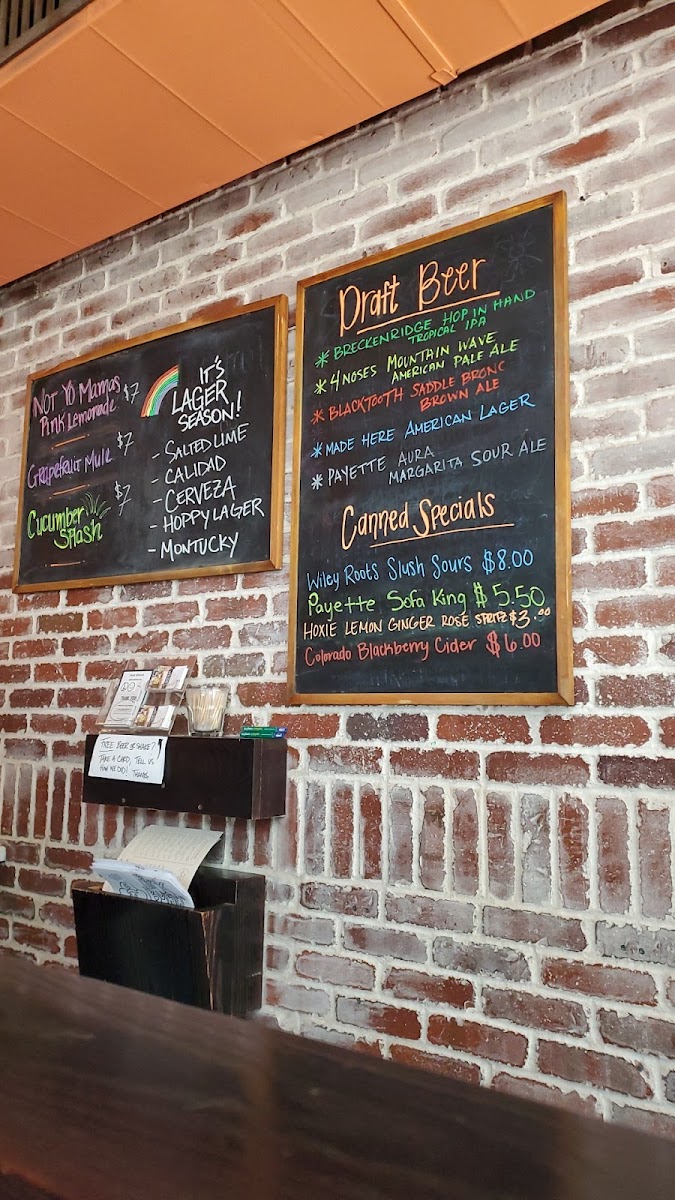 Not Yo Mamas $7
Pink Lemonade
Grapefruit Mule $7
Cucumber $7
Splash
IT'S
LAGER
SEASON!
- SALTED LIME
- CALIDAD
- CERVEZA
- HOPPY LAGER
- MONTUCKY
Draft Beer
* BRECKENRIDGE HOP IN HAND
TROPICAL IPA
* 4 NOSES MOUNTAIN WAVE
AMERICAN PALE ALE
* BLACKTOOTH SADDLE BRONC
BROWN ALE
* MADE HERE AMERICAN LAGER
* PAYETTE AURA
MARGARITA SOUR ALE
Canned Specials
Wiley Roots Slush Sours $8.00
Payette Sofa King $5.50
HOXIE LEMON GINGER ROSE SPRITZ $3.00
Colorado Blackberry Cider $6.00
FREE BEER OR SHAKE?
TAKE A CARD, TELL US
HOW WE DID! THANKS